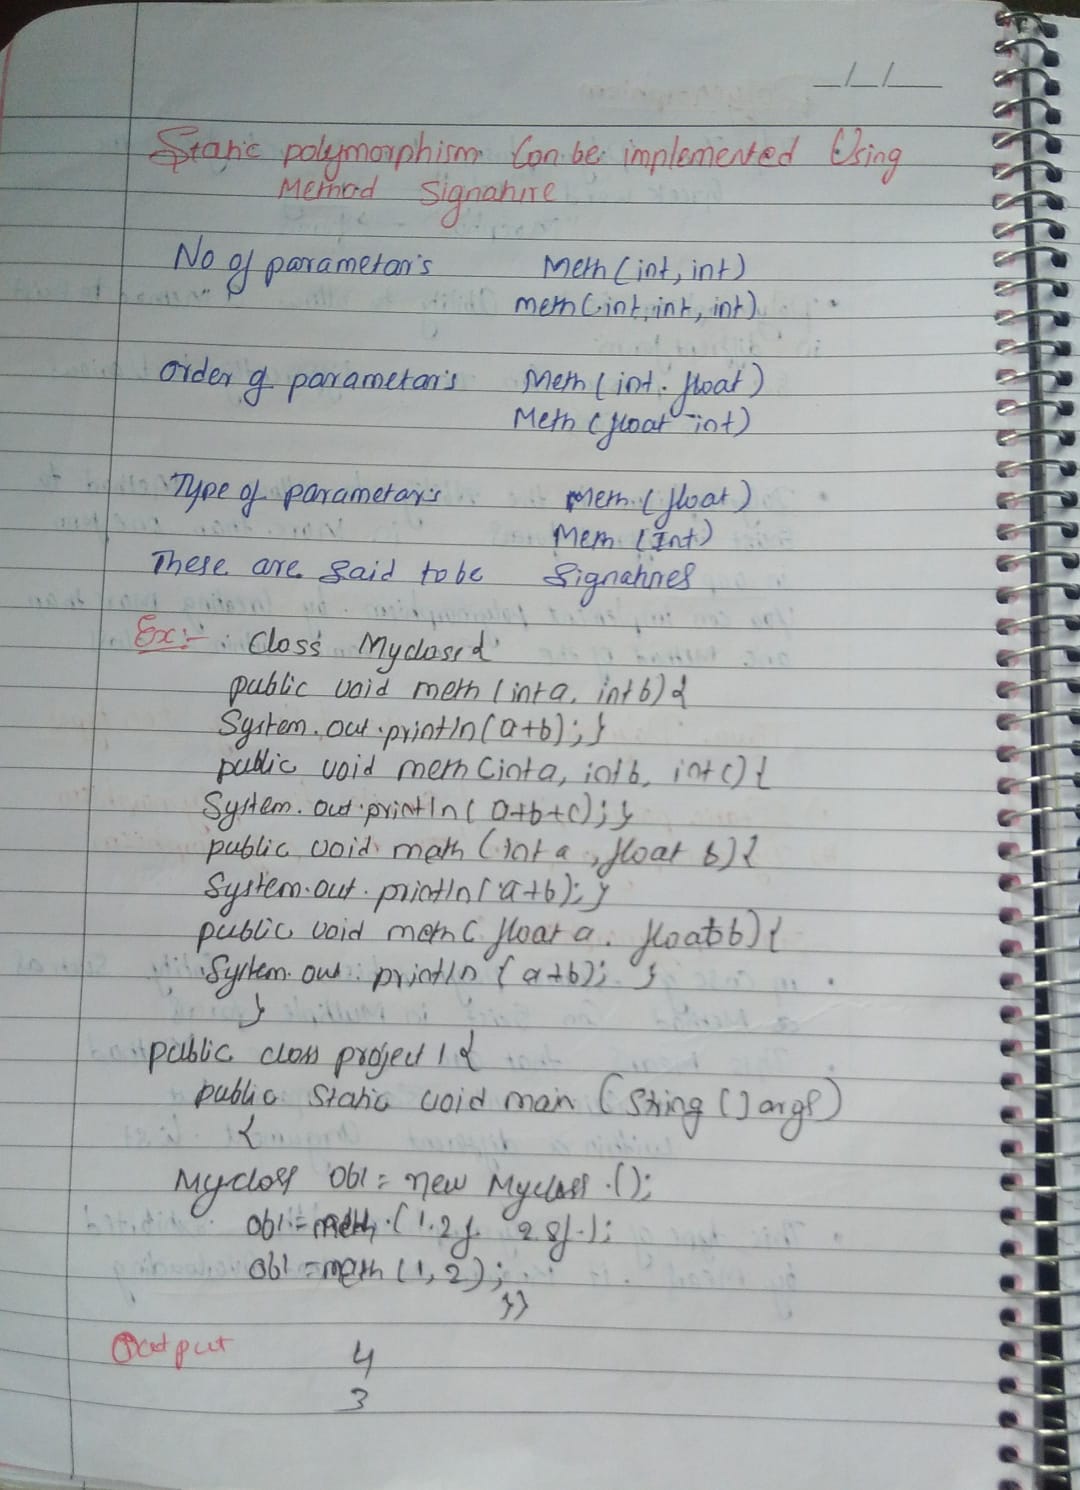 __/__/__
Static polymorphism Can be implemented Using
Method Signature
No of parametar's Meth (int, int)
meth (int, int, int)
Order of parametar's Meth (int. float)
Meth (float int)
Type of parametar's Meth (float)
Meth (Int)
These are said to be Signatures
Ex:- Class Myclass {
public void meth (int a, int b) {
System.out.println(a+b); }
public void meth (int a, int b, int c) {
System.out.println( a+b+c); }
public void math (int a, float b) {
System.out.println( a+b); }
public void meth ( float a. float b) {
System.out.println ( a+b); }
}
public class project 1 {
public Static void main (String [] args)
{
Myclass Ob1 = new Myclass.();
Ob1 = meth.(1.2f. 2.8f.);
Ob1 = meth (1, 2);
}}
Output 4
3